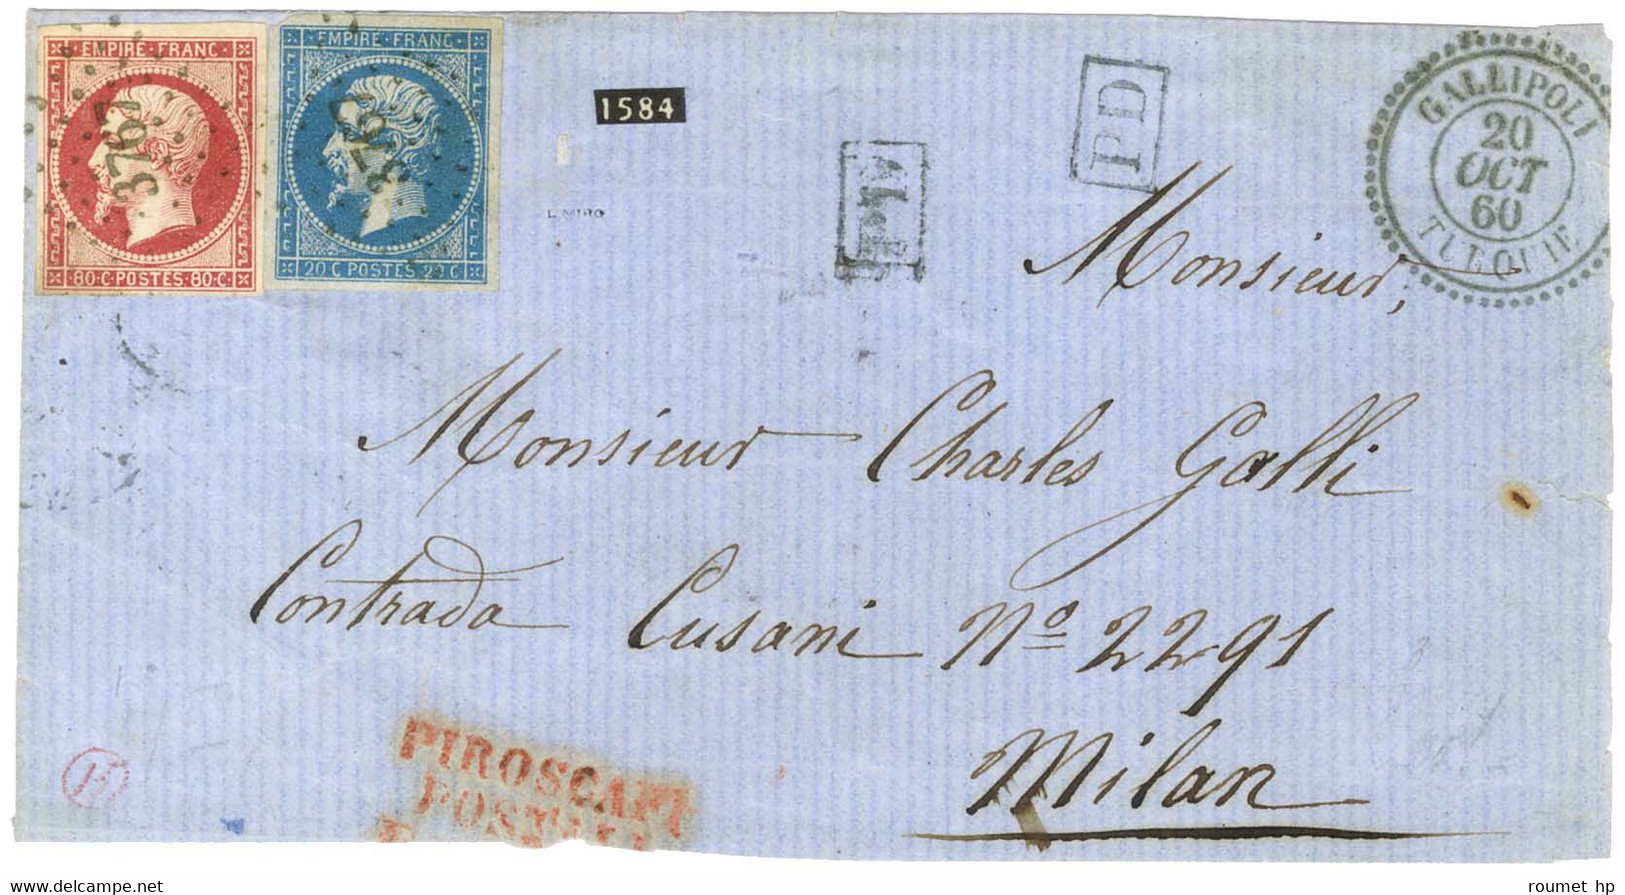 EMPIRE · FRANC
3767
80 · C · POSTES · 80 · C
EMPIRE · FRANC
3767
20 · C POSTES 2 · C
1584
PD
GALLIPOLI
20
OCT
60
TURQUIE
Monsieur,
Monsieur Charles Galli
Contrada Cusani No 2291
Milan
PIROSCAFI
POSTALI
15
www.delcampe.net
roumet hp